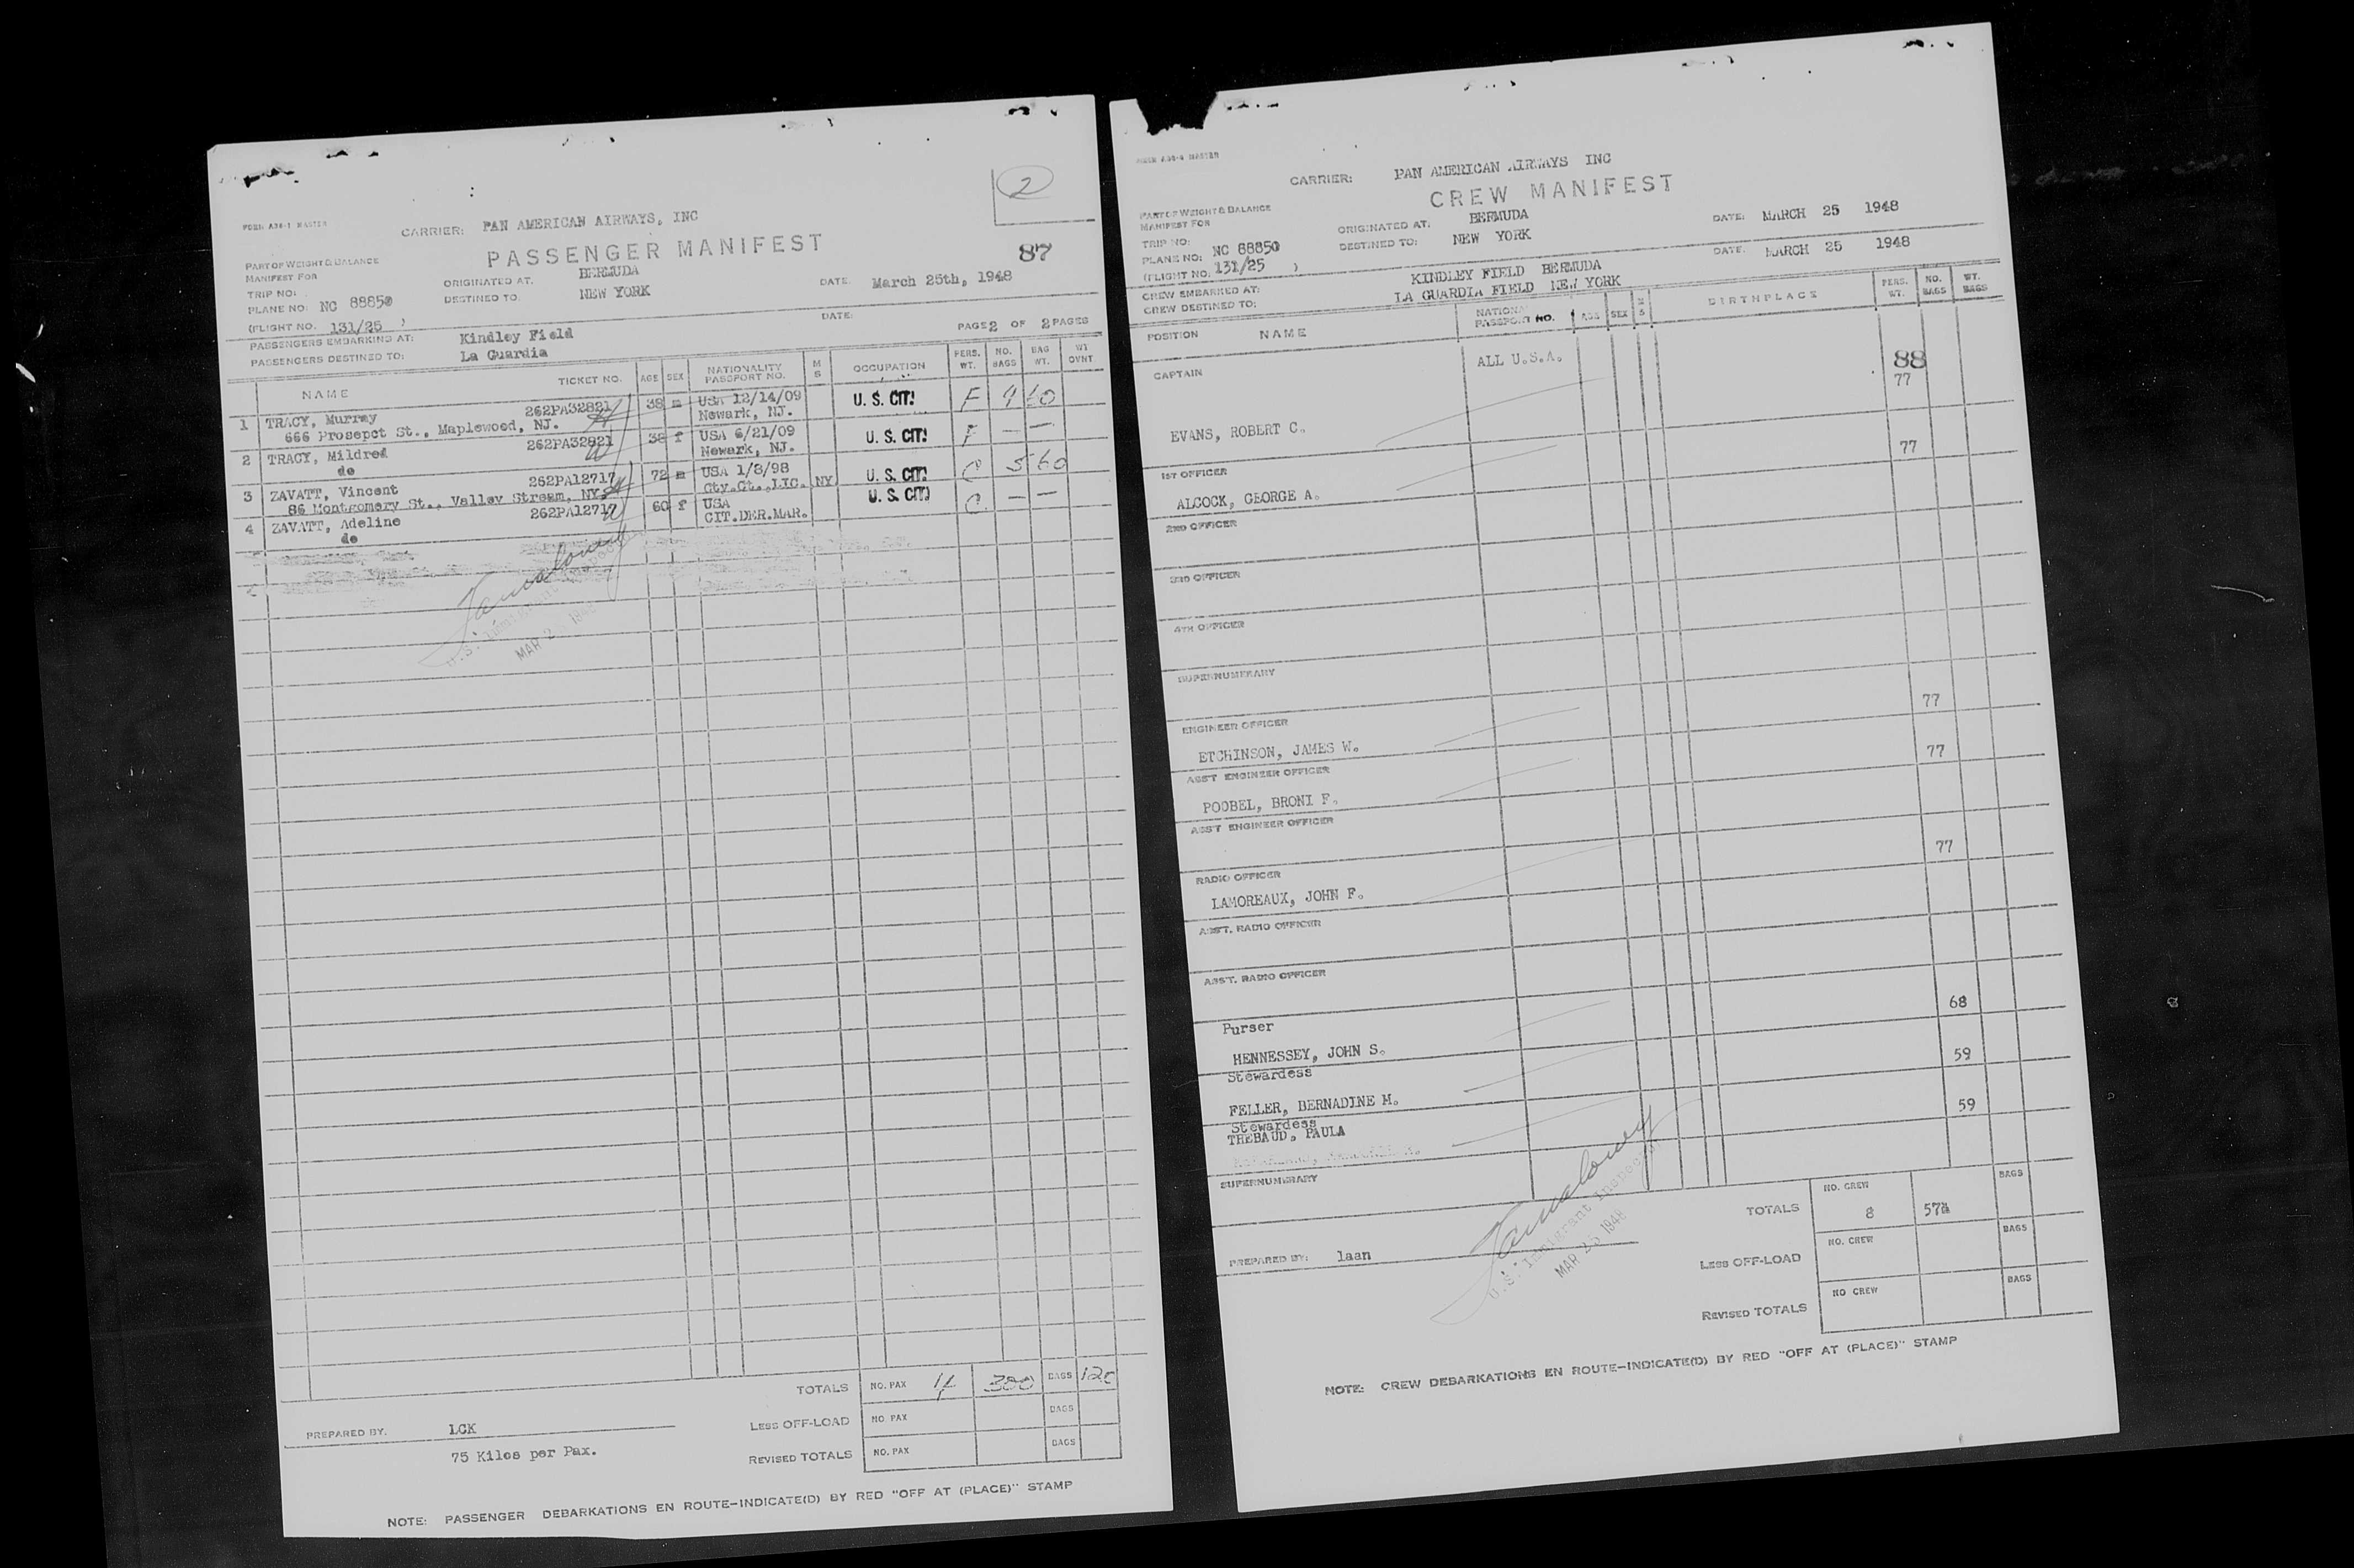 2
FORM A36-1 MASTER
CARRIER: PAN AMERICAN AIRWAYS, INC
PASSENGER MANIFEST
87
PART OF WEIGHT & BALANCE
MANIFEST FOR
TRIP NO:
PLANE NO: NC 88850
(FLIGHT NO. 131/25 )
ORIGINATED AT. BERMUDA
DESTINED TO. NEW YORK
DATE. March 25th, 1948
DATE:
PASSENGERS EMBARKING AT: Kindley Field
PASSENGERS DESTINED TO: La Guardia
PAGE 2 OF 2 PAGES
NAME TICKET NO. AGE SEX NATIONALITY PASSPORT NO. M S OCCUPATION PERS. WT. NO. BAGS BAG WT. WT OVNT
1 TRACY, Murray 262PA32821 38 m USA 12/14/09 U. S. CIT. F 4 60
666 Prosepct St., Maplewood, NJ. Newark, NJ.
2 TRACY, Mildred 262PA32821 38 f USA 6/21/09 U. S. CIT. F — —
do Newark, NJ.
3 ZAVATT, Vincent 262PA12717 72 m USA 1/8/98 U. S. CIT. C 5 60
86 Montgomery St., Valley Stream, NY. Cty.Ct.,LIC. NY
4 ZAVATT, Adeline 262PA12717 60 f USA U. S. CIT. C — —
do CIT.DER.MAR.
U.S. Immigrant Inspector
MAR 2 194
TOTALS NO. PAX 4 300 BAGS 120
LESS OFF-LOAD NO. PAX BAGS
REVISED TOTALS NO. PAX BAGS
PREPARED BY. LCK
75 Kilos per Pax.
NOTE: PASSENGER DEBARKATIONS EN ROUTE-INDICATE(D) BY RED "OFF AT (PLACE)" STAMP
MASTER
CARRIER: PAN AMERICAN AIRWAYS INC
CREW MANIFEST
PART OF WEIGHT & BALANCE
MANIFEST FOR
TRIP NO:
PLANE NO: NC 88850
(FLIGHT NO. 131/25 )
ORIGINATED AT: BERMUDA DATE: MARCH 25 1948
DESTINED TO: NEW YORK DATE. MARCH 25 1948
CREW EMBARKED AT: KINDLEY FIELD BERMUDA
CREW DESTINED TO: LA GUARDIA FIELD NEW YORK
POSITION NAME NATION. PASSPORT NO. AGE SEX M S BIRTHPLACE PERS. WT. NO. BAGS WT. BAGS
CAPTAIN ALL U.S.A. 88
77
EVANS, ROBERT C.
1ST OFFICER 77
ALCOCK, GEORGE A.
2ND OFFICER
3RD OFFICER
4TH OFFICER
SUPERNUMERARY
ENGINEER OFFICER 77
ETCHINSON, JAMES W.
ASST ENGINEER OFFICER 77
POOBEL, BRONI F.
ASST ENGINEER OFFICER
RADIO OFFICER 77
LAMOREAUX, JOHN F.
ASST. RADIO OFFICER
ASST. RADIO OFFICER
Purser 68
HENNESSEY, JOHN S.
Stewardess 59
FELLER, BERNADINE M.
Stewardess 59
THEBAUD, PAULA
SUPERNUMERARY
TOTALS NO. CREW 8 571 BAGS
LESS OFF-LOAD NO. CREW BAGS
REVISED TOTALS NO CREW BAGS
PREPARED BY: laan
U.S. Immigrant Inspector
MAR 25 1948
NOTE: CREW DEBARKATIONS EN ROUTE-INDICATE(D) BY RED "OFF AT (PLACE)" STAMP